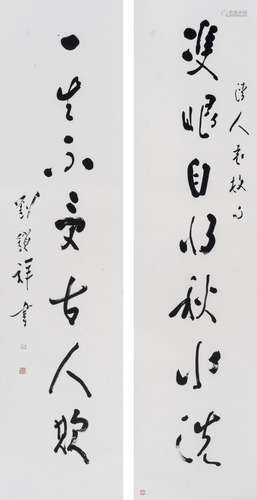 双眼自将秋水洗
清人袁枚句
一生不受古人欺
刘锁祥书